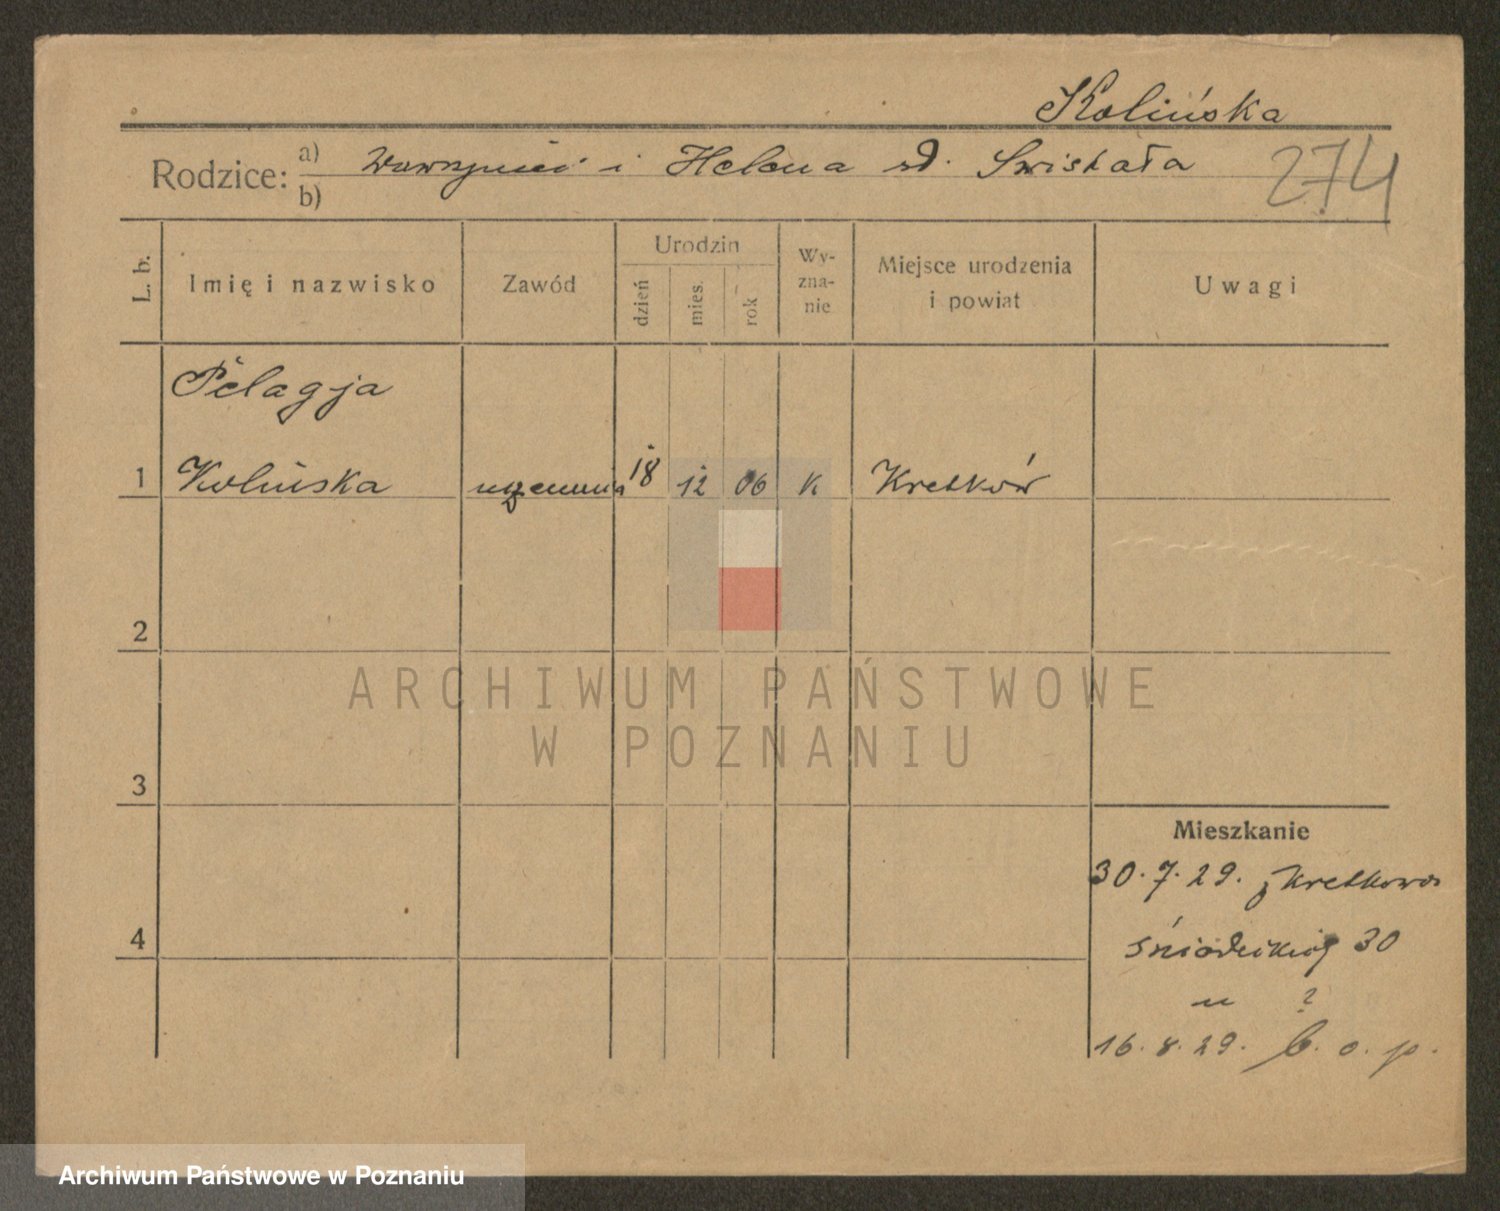 Kolińska
Rodzice: a) Wawrzyniec i Helena rd. Swiskała
b)
274
L. b.
Imię i nazwisko
Zawód
Urodzin
dzień
mies.
rok
Wy-
zna-
nie
Miejsce urodzenia
i powiat
Uwagi
Pelagja
1 Kolińska uczennica 18 12 06 K Kretków
2
ARCHIWUM PAŃSTWOWE
W POZNANIU
3
Mieszkanie
30.7.29. z Kretkowa
4
30
" ?
16.8.29. b. o. p.
Archiwum Państwowe w Poznaniu